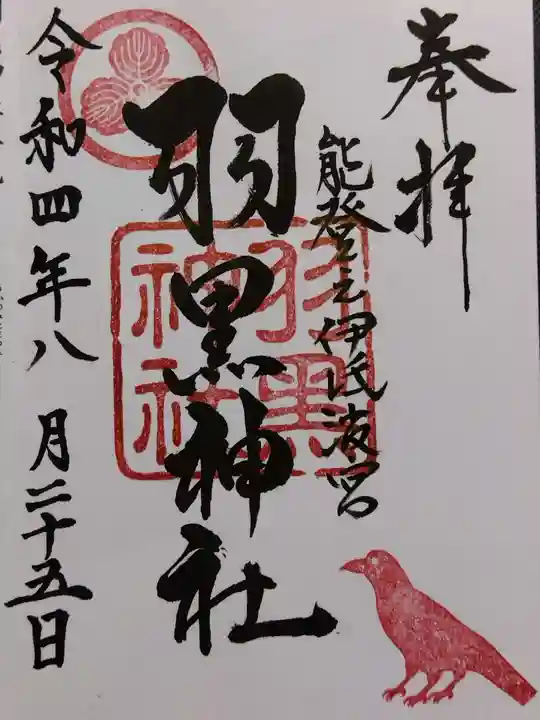 奉拝
能登之伊氐波宮
羽黒神社
羽黒
神社
令和四年八月二十五日